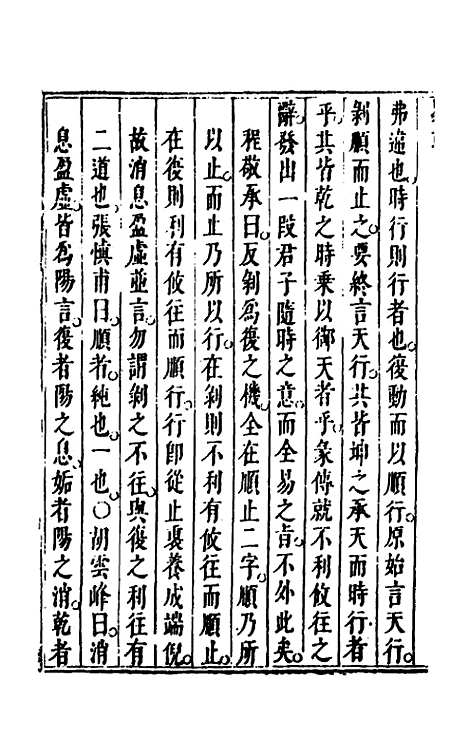 弗違也時行則行者也復動而以順行原始言天行
剝順而止之要終言天行其皆坤之承天而時行者
乎其皆乾之時乘以御天者乎彖傳就不利攸往之
辭發出一段君子隨時之意而全易之旨不外此矣
程敬承曰反剝爲復之機全在順止二字順乃所
以止而止乃所以行在剝則不利有攸往而順止
在復則利有攸往而順行行卽從止裏養成端倪
故消息盈虛並言勿謂剝之不往與復之利往有
二道也張慎甫曰順者純也一也○胡雲峰曰消
息盈虛皆爲陽言復者陽之息姤者陽之消乾者